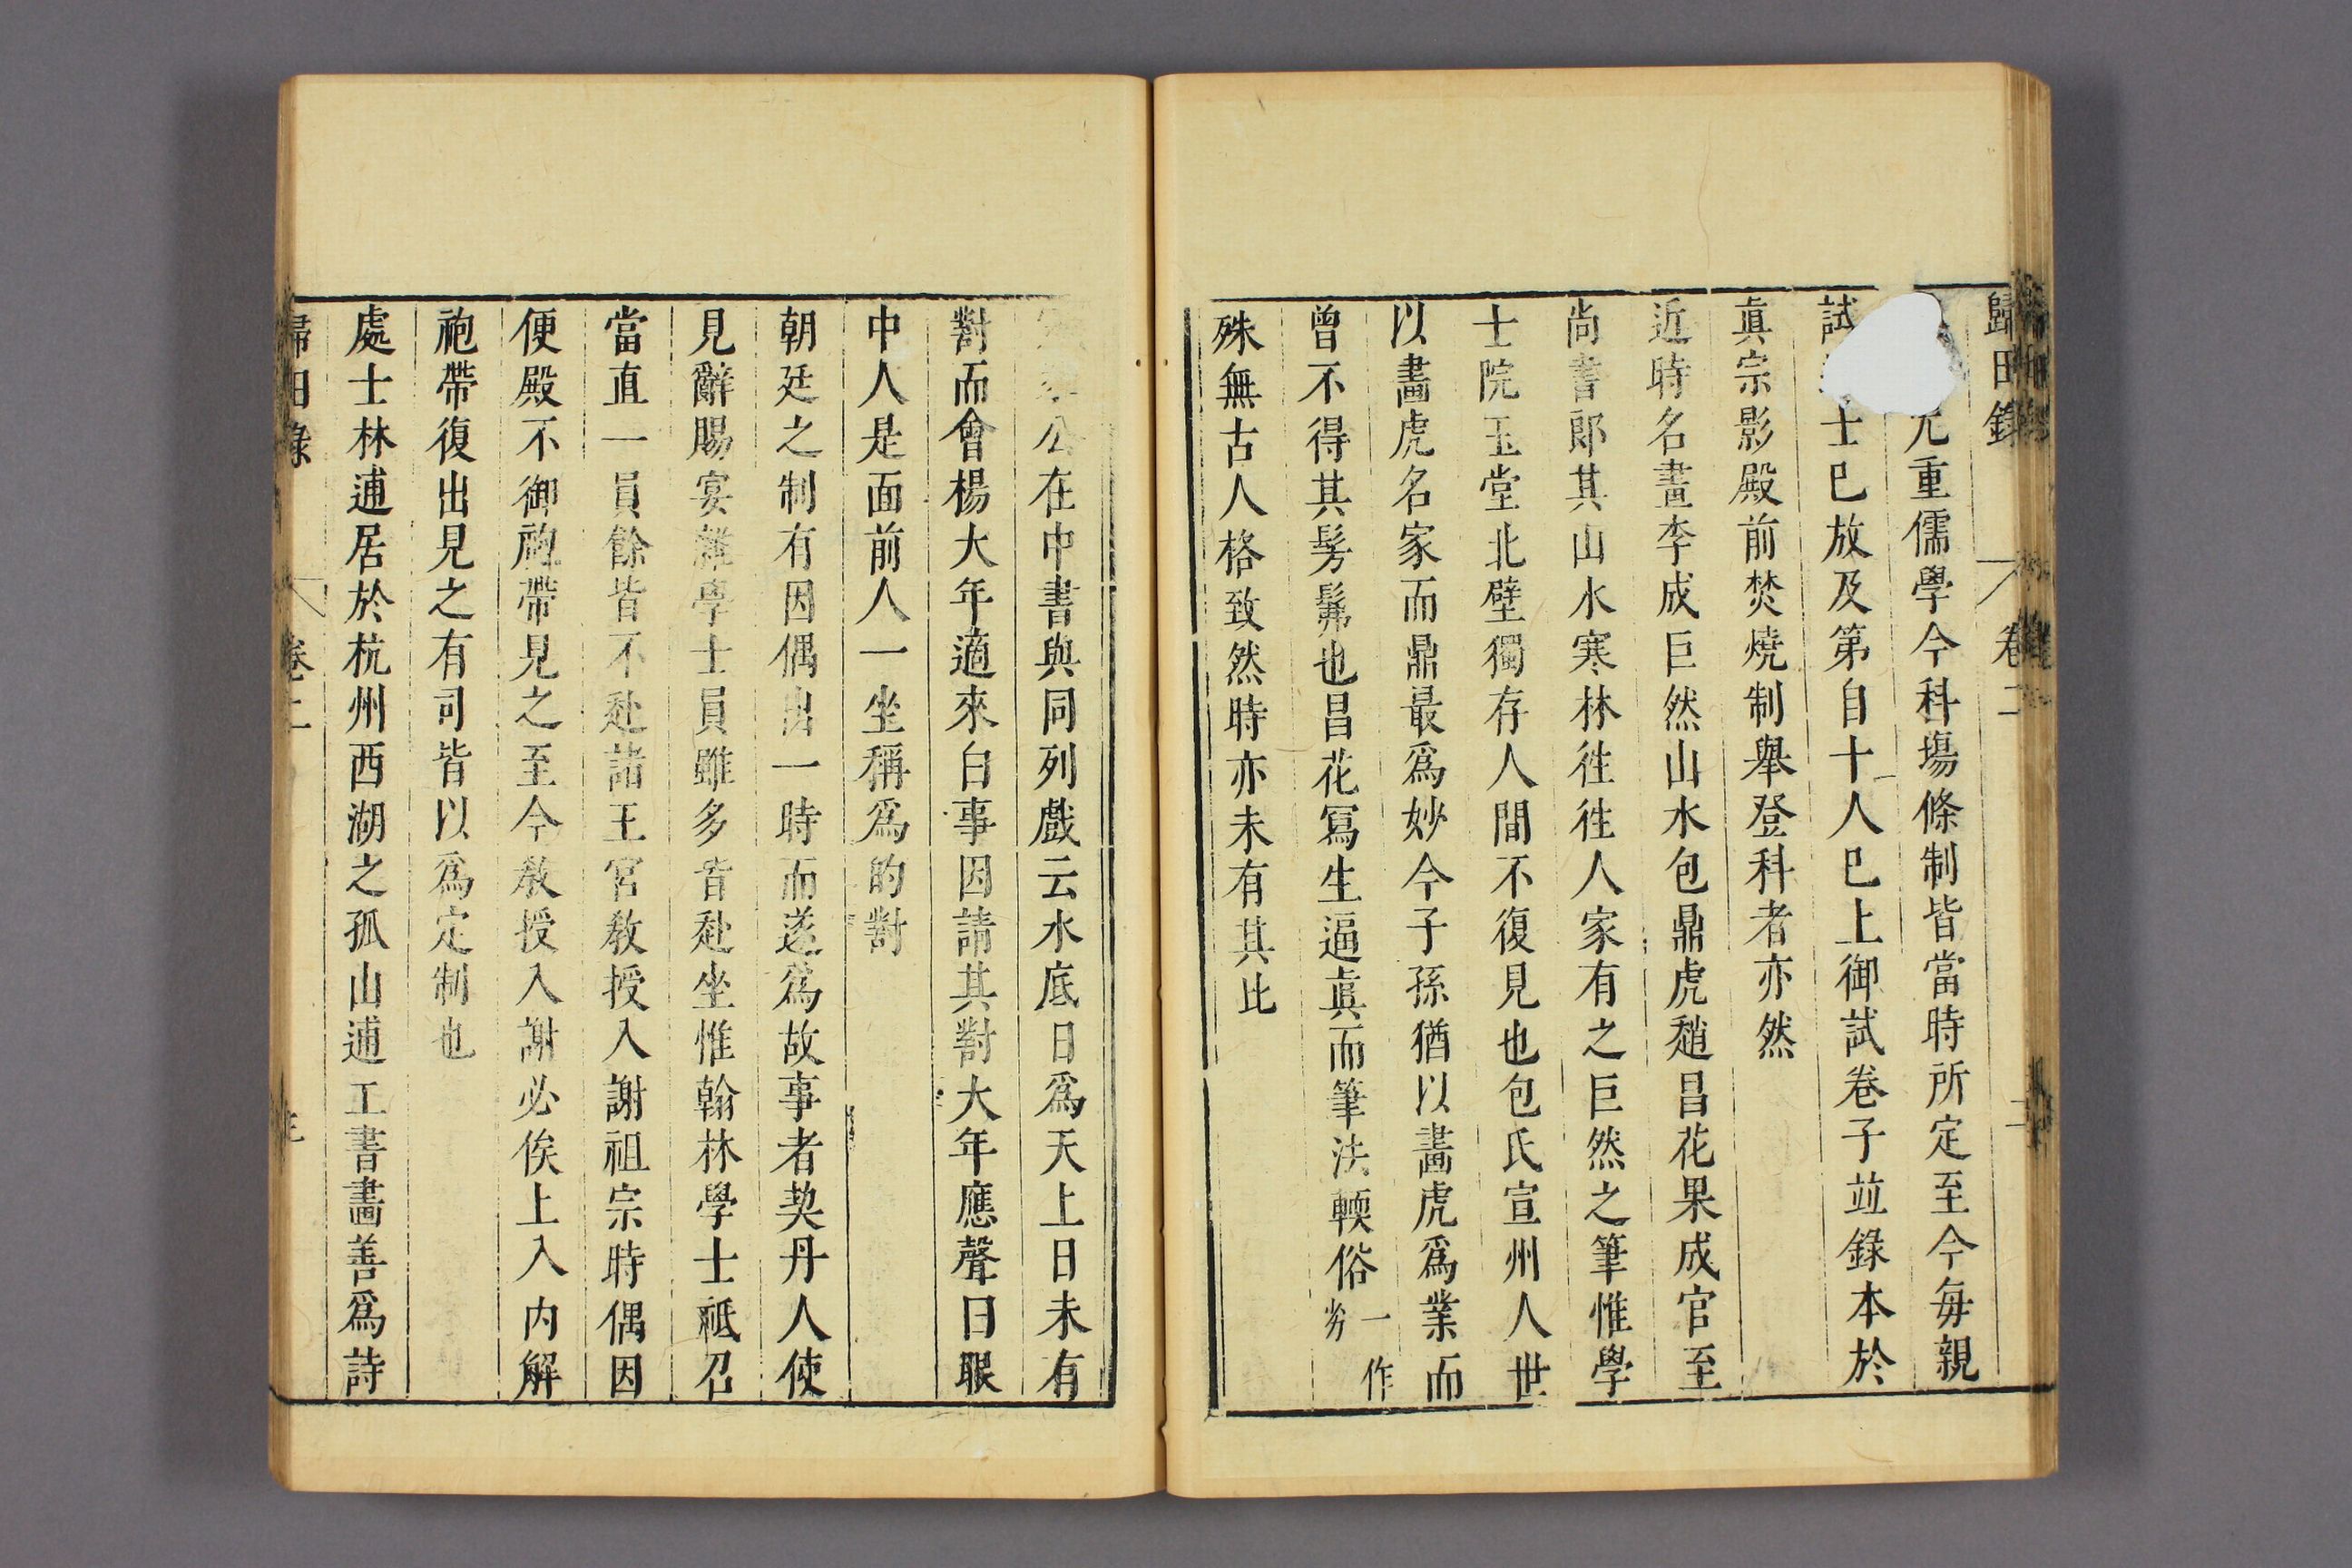 歸田錄 卷二
尤重儒學今科塲條制皆當時所定至今每親
試 士已放及第自十人已上御試卷子並錄本於
眞宗影殿前焚燒制舉登科者亦然
近時名畫李成巨然山水包鼎虎趙昌花果成官至
尚書郎其山水寒林徃徃人家有之巨然之筆惟學
士院玉堂北壁獨存人間不復見也包氏宣州人世
以畵虎名家而鼎最爲妙今子孫猶以畵虎爲業而
曾不得其髣髴也昌花寫生逼眞而筆法輭俗一作
劣
殊無古人格致然時亦未有其比
公在中書與同列戲云水底日爲天上日未有
對而會楊大年適來白事因請其對大年應聲曰眼
中人是面前人一坐稱爲的對
朝廷之制有因偶出一時而遂爲故事者契丹人使
見辭賜宴雜學士員雖多皆赴坐惟翰林學士祗召
當直一員餘皆不赴諸王宮敎授入謝祖宗時偶因
便殿不御袍帶見之至今敎授入謝必俟上入内解
袍帶復出見之有司皆以爲定制也
處士林逋居於杭州西湖之孤山逋工書畵善爲詩
歸田錄 卷二